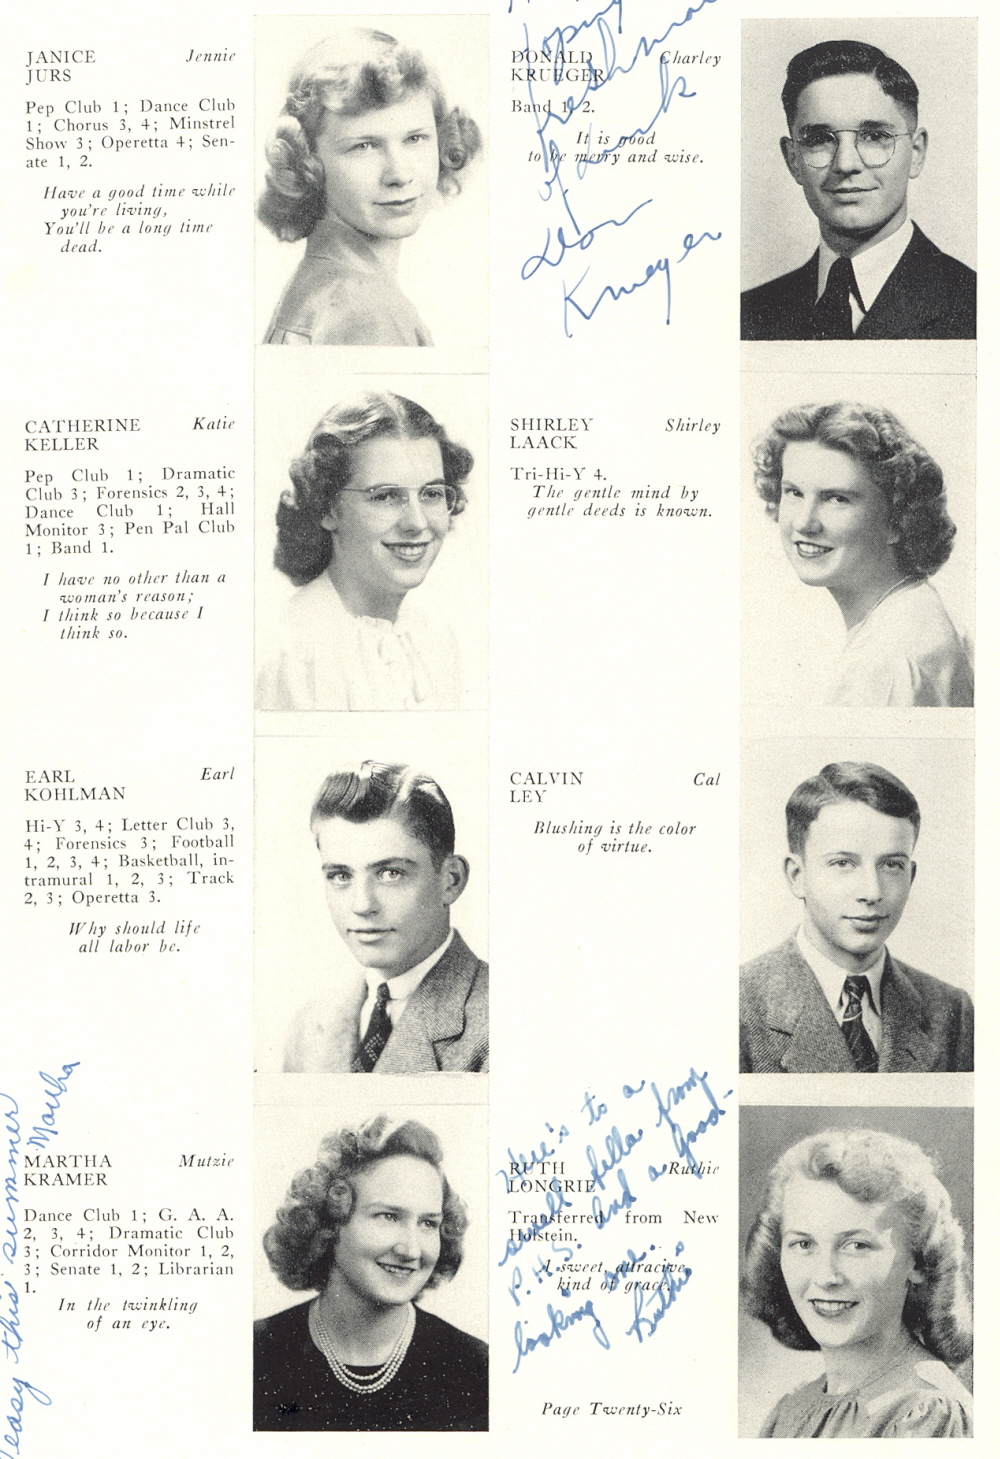 JANICE Jennie
JURS
Pep Club 1; Dance Club
1; Chorus 3, 4; Minstrel
Show 3; Operetta 4; Sen-
ate 1, 2.
Have a good time while
you're living,
You'll be a long time
dead.
CATHERINE Katie
KELLER
Pep Club 1; Dramatic
Club 3; Forensics 2, 3, 4;
Dance Club 1; Hall
Monitor 3; Pen Pal Club
1; Band 1.
I have no other than a
woman's reason;
I think so because I
think so.
EARL Earl
KOHLMAN
Hi-Y 3, 4; Letter Club 3,
4; Forensics 3; Football
1, 2, 3, 4; Basketball, in-
tramural 1, 2, 3; Track
2, 3; Operetta 3.
Why should life
all labor be.
MARTHA Mutzie
KRAMER
Dance Club 1; G. A. A.
2, 3, 4; Dramatic Club
3; Corridor Monitor 1, 2,
3; Senate 1, 2; Librarian
1.
In the twinkling
of an eye.
easy this summer
Martha
DONALD Charley
KRUEGER
Band 1, 2.
It is good
to be merry and wise.
Hoping
freshman
of
Don
Krueger
SHIRLEY Shirley
LAACK
Tri-Hi-Y 4.
The gentle mind by
gentle deeds is known.
CALVIN Cal
LEY
Blushing is the color
of virtue.
RUTH Ruthie
LONGRIE
Transferred from New
Holstein.
A sweet, attracive
kind of grace.
Here's to a
swell fella from
P. H. S. and a good-
looking one.
Ruthie
Page Twenty-Six